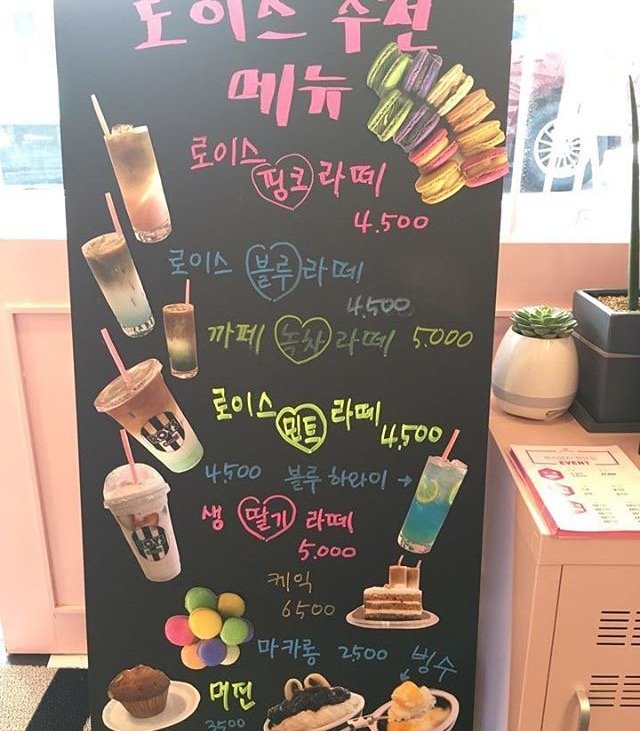 로이스 추천
메뉴
로이스 핑크라떼
4.500
로이스 블루라떼
4.500
까페 녹차라떼 5.000
로이스 민트라떼
4,500
4,500 블루하와이 →
생 딸기라떼
5.000
케익
6500
마카롱 2500
빙수
머핀
3500
EVENT